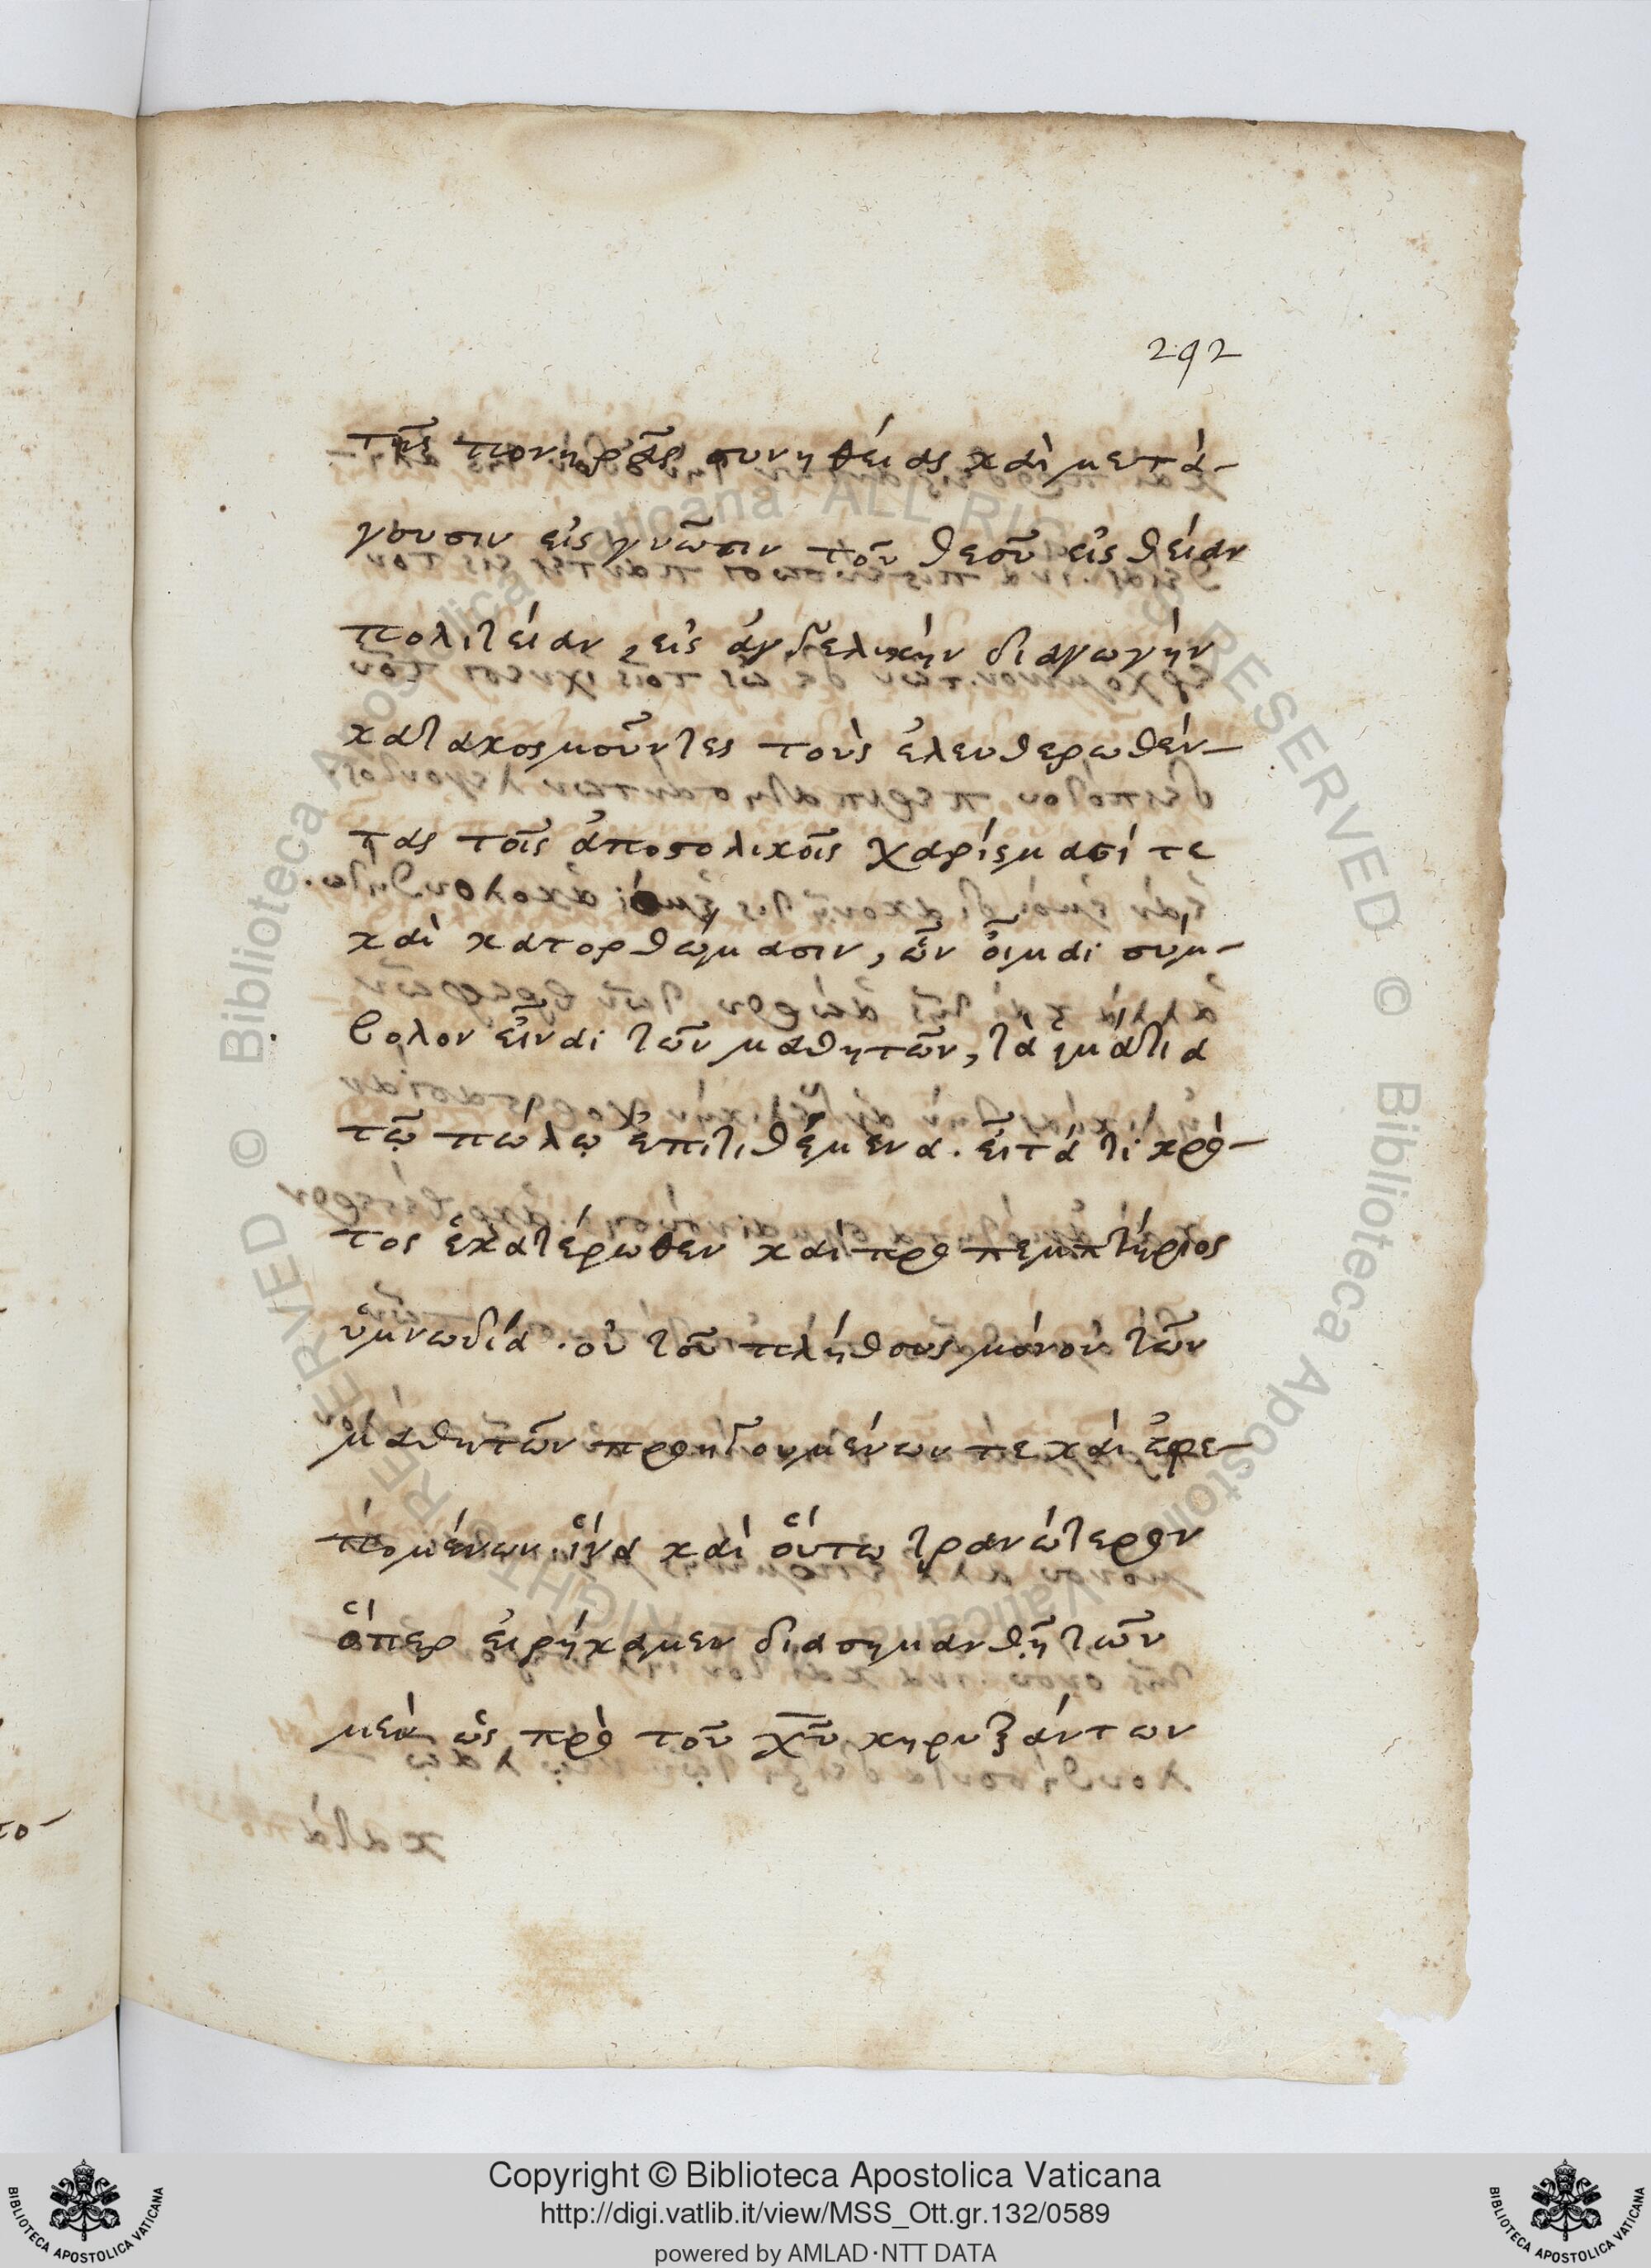 292
τῆς πονηρᾶς συνηθείας καὶ μετά-
γουσιν εἰς γνῶσιν τοῦ θεοῦ εἰς θείαν
πολιτείαν, εἰς ἀγγελικὴν διαγωγὴν
κατακοσμοῦντες τοὺς ἐλευθερωθέν-
τας τοῖς ἀποστολικοῖς χαρίσμασί τε
καὶ κατορθώμασιν, ὧν οἶμαι σύμ-
βολον εἶναι τῶν μαθητῶν, τὰ ἱμάτια
τῷ πώλῳ ἐπιτιθέμενα. εἶτά τι κρό-
τος ἑκατέρωθεν καὶ προπεμπτήριος
ὑμνωδία. οὐ τοῦ πλήθους μόνον τῶν
μαθητῶν προηγουμένων τε καὶ ἐφε-
πομένων. ἵνα καὶ οὕτω τρανώτερον
ὅπερ εἰρήκαμεν διασημανθῇ τῶν
μὲν ὡς πρὸ τοῦ χ̅υ̅ κηρυξάντων
το-
Copyright © Biblioteca Apostolica Vaticana
http://digi.vatlib.it/view/MSS_Ott.gr.132/0589
powered by AMLAD·NTT DATA
BIBLIOTECA APOSTOLICA VATICANA
BIBLIOTECA APOSTOLICA VATICANA